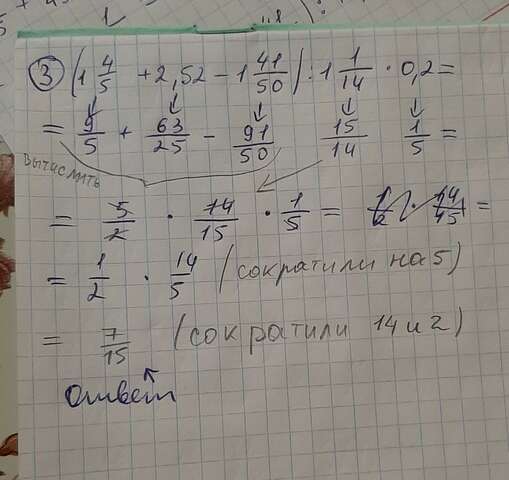 ③ (1 4/5 + 2,52 - 1 41/50) : 1 1/14 · 0,2 =
= 9/5 + 63/25 - 91/50 15/14 1/5 =
вычислить
= 5/2 · 14/15 · 1/5 = 1/2 · 14/45 =
= 1/2 · 14/5 (сократили на 5)
= 7/15 (сократили 14 и 2)
ответ